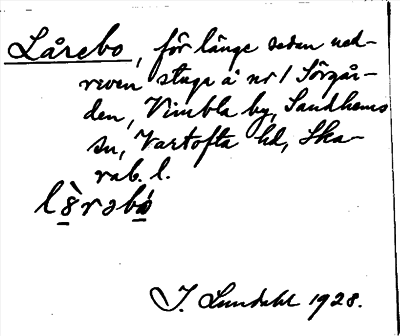 Lårebo, för länge sedan ned-
reven stuga å nr 1 Sörgår-
den, Vimbla by, Sandhems
sn, Vartofta hd, Ska-
rab. l.
J. Lundahl 1928.